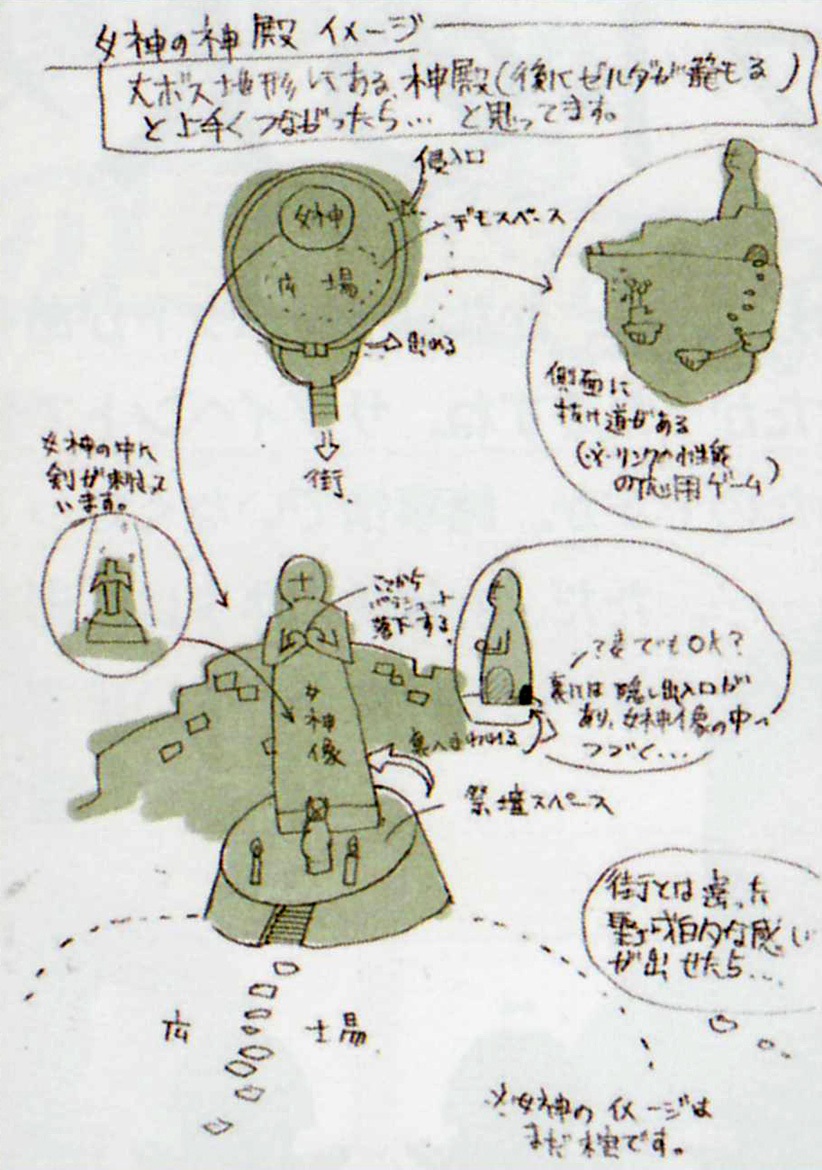 女神の神殿 イメージ
大ボス地形にある、神殿(後にゼルダが籠もる)
と上手くつながったら… と思ってます。
侵入口
女神
デモスペース
広場
出れる
街
側面に
抜け道がある
(※リンクの性能
の応用ゲーム)
女神の中に
剣が刺さって
います。
ここから
パラシュート
落下する。
女神像
?変でもOK?
裏には 隠し出入口が
あり、女神像の中へ
つづく…
裏へまわれる
祭壇スペース
街とは違った
聖域的な感じ
が出せたら…
広 場
※女神のイメージは
まだ未定です。